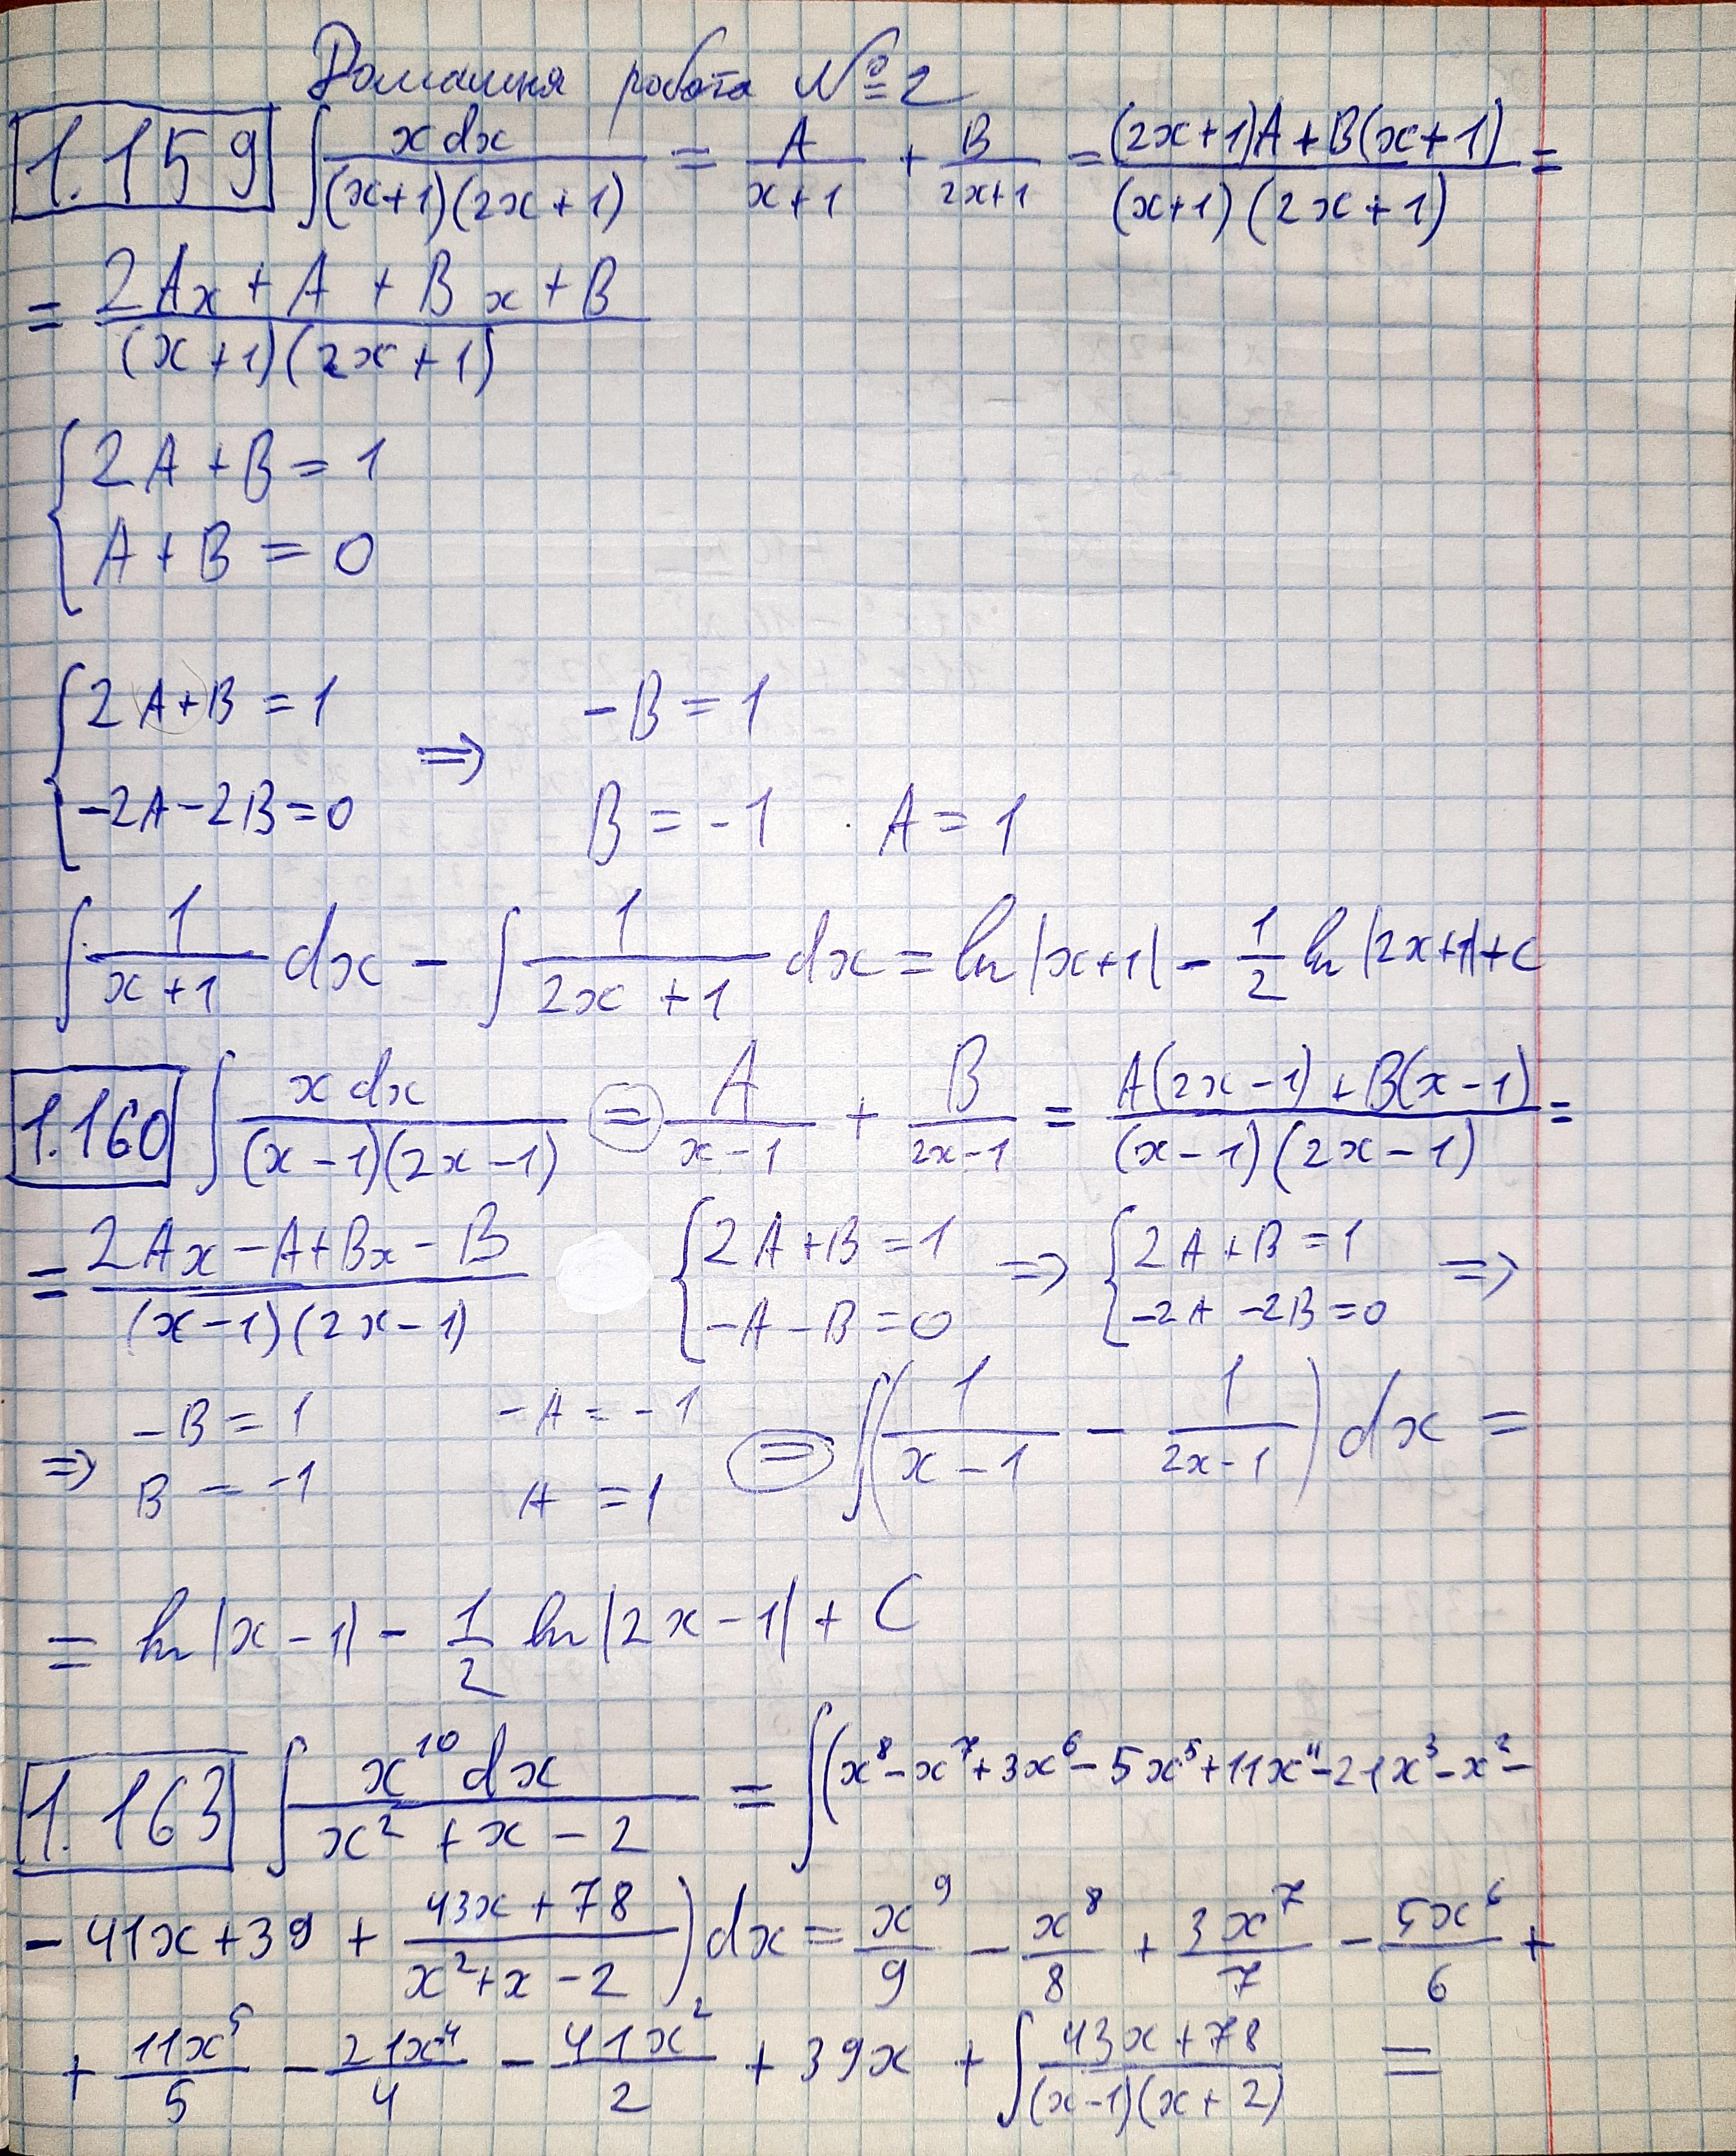 Домашня робота № 2
1.159 ∫ x dx / (x+1)(2x+1) = A / x+1 + B / 2x+1 = (2x+1)A + B(x+1) / (x+1)(2x+1) =
= 2Ax + A + Bx + B / (x+1)(2x+1)
{ 2A + B = 1
A + B = 0
{ 2A+B = 1 ⇒ -B = 1
-2A-2B=0 B = -1 A = 1
∫ 1 / x+1 dx - ∫ 1 / 2x+1 dx = ln|x+1| - 1/2 ln|2x+1|+C
1.160 ∫ x dx / (x-1)(2x-1) = A / x-1 + B / 2x-1 = A(2x-1) + B(x-1) / (x-1)(2x-1) =
= 2Ax - A + Bx - B / (x-1)(2x-1) { 2A+B = 1 -A-B = 0 ⇒ { 2A+B = 1 -2A-2B=0 ⇒
⇒ -B = 1 B = -1 -A = -1 A = 1 = ∫(1 / x-1 - 1 / 2x-1) dx =
= ln|x-1| - 1/2 ln|2x-1| + C
1.163 ∫ x¹⁰ dx / x² + x - 2 = ∫(x⁸ - x⁷ + 3x⁶ - 5x⁵ + 11x⁴ - 21x³ - x² -
- 41x + 39 + 43x + 78 / x² + x - 2) dx = x⁹/9 - x⁸/8 + 3x⁷/7 - 5x⁶/6 +
+ 11x⁵/5 - 21x⁴/4 - 41x²/2 + 39x + ∫ 43x + 78 / (x-1)(x+2) =